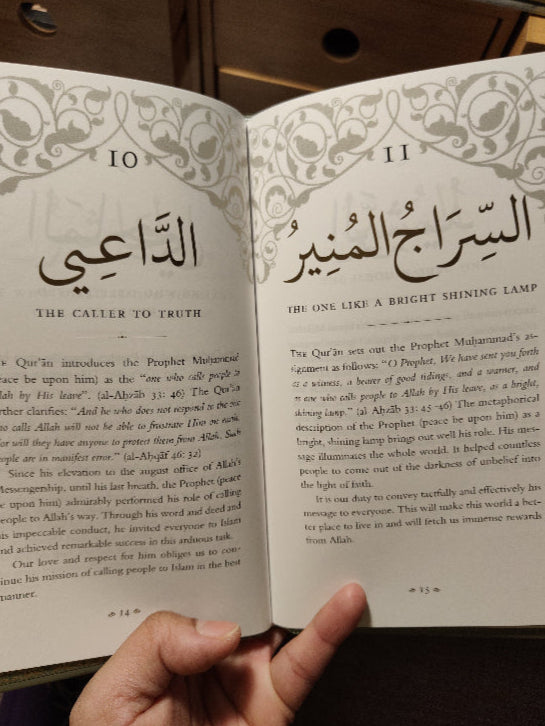 10
الدَّاعِي
THE CALLER TO TRUTH
Qur'ān introduces the Prophet Muḥammad
peace be upon him) as the "one who calls people to
llah by His leave". (al-Aḥzāb 33: 46) The Qur'ān
rther clarifies: "And he who does not respond to the one
to calls Allah will not be able to frustrate Him on earth,
or will they have anyone to protect them from Allah. Such
eople are in manifest error." (al-Aḥqāf 46: 32)
Since his elevation to the august office of Allah's
Messengership, until his last breath, the Prophet (peace
e upon him) admirably performed his role of calling
eople to Allah's way. Through his word and deed and
is impeccable conduct, he invited everyone to Islam
nd achieved remarkable success in this arduous task.
Our love and respect for him obliges us to con-
inue his mission of calling people to Islam in the best
manner.
14
11
السِّرَاجُ المُنِيرُ
THE ONE LIKE A BRIGHT SHINING LAMP
THE Qur'ān sets out the Prophet Muḥammad's as-
signment as follows: "O Prophet, We have sent you forth
as a witness, a bearer of good tidings, and a warner, and
as one who calls people to Allah by His leave, as a bright,
shining lamp." (al Aḥzāb 33: 45-46) The metaphorical
description of the Prophet (peace be upon him) as a
bright, shining lamp brings out well his role. His mes-
sage illuminates the whole world. It helped countless
people to come out of the darkness of unbelief into
the light of faith.
It is our duty to convey tactfully and effectively his
message to everyone. This will make this world a bet-
ter place to live in and will fetch us immense rewards
from Allah.
15